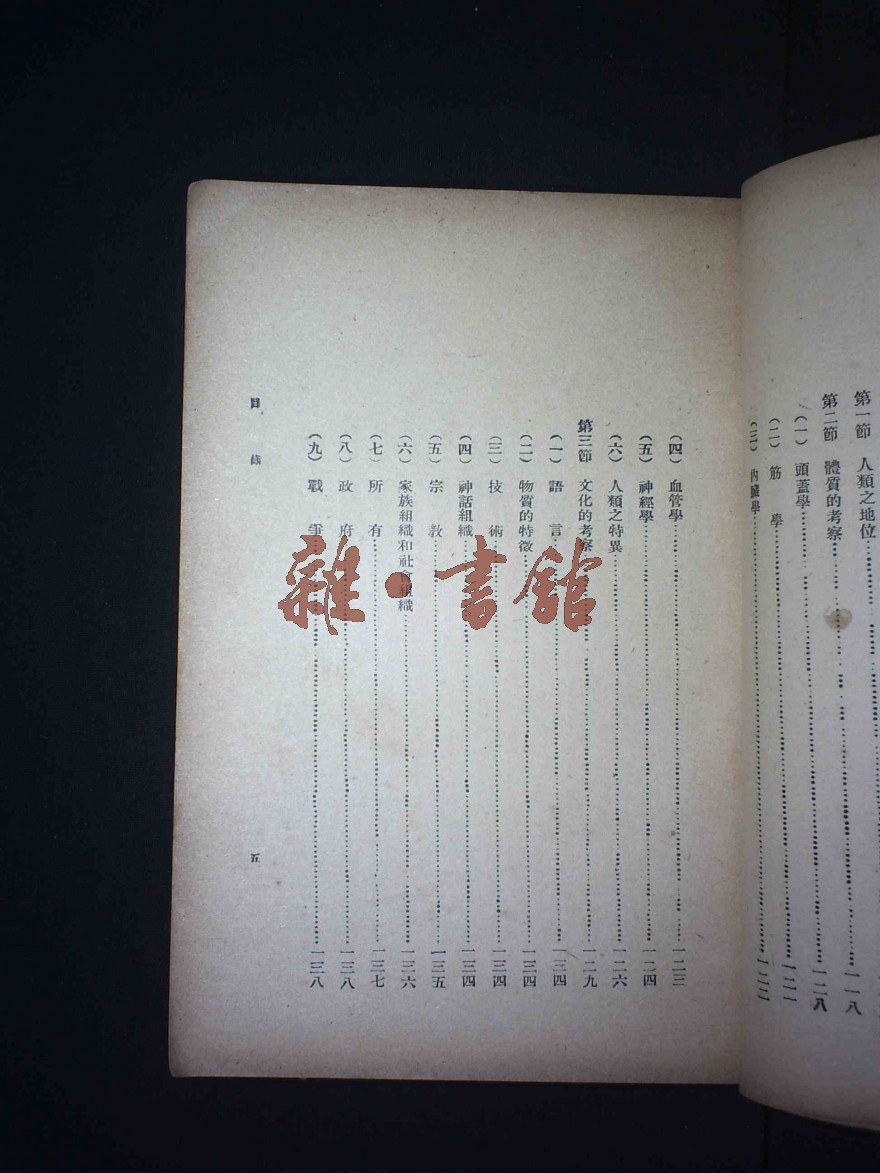 第一節 人類之地位……一一八
第二節 體質的考察……一二八
(一) 頭蓋學……一二一
(二) 筋學……一二一
(三) 內臟學……一二二
(四) 血管學……一二三
(五) 神經學……一二四
(六) 人類之特異……一二六
第三節 文化的考察……一二九
(一) 語言……一三四
(二) 物質的特徵……一三四
(三) 技術……一三四
(四) 神話組織……一三四
(五) 宗教……一三五
(六) 家族組織和社會組織……一三六
(七) 所有……一三七
(八) 政府……一三八
(九) 戰爭……一三八
目錄 五
雜·書館